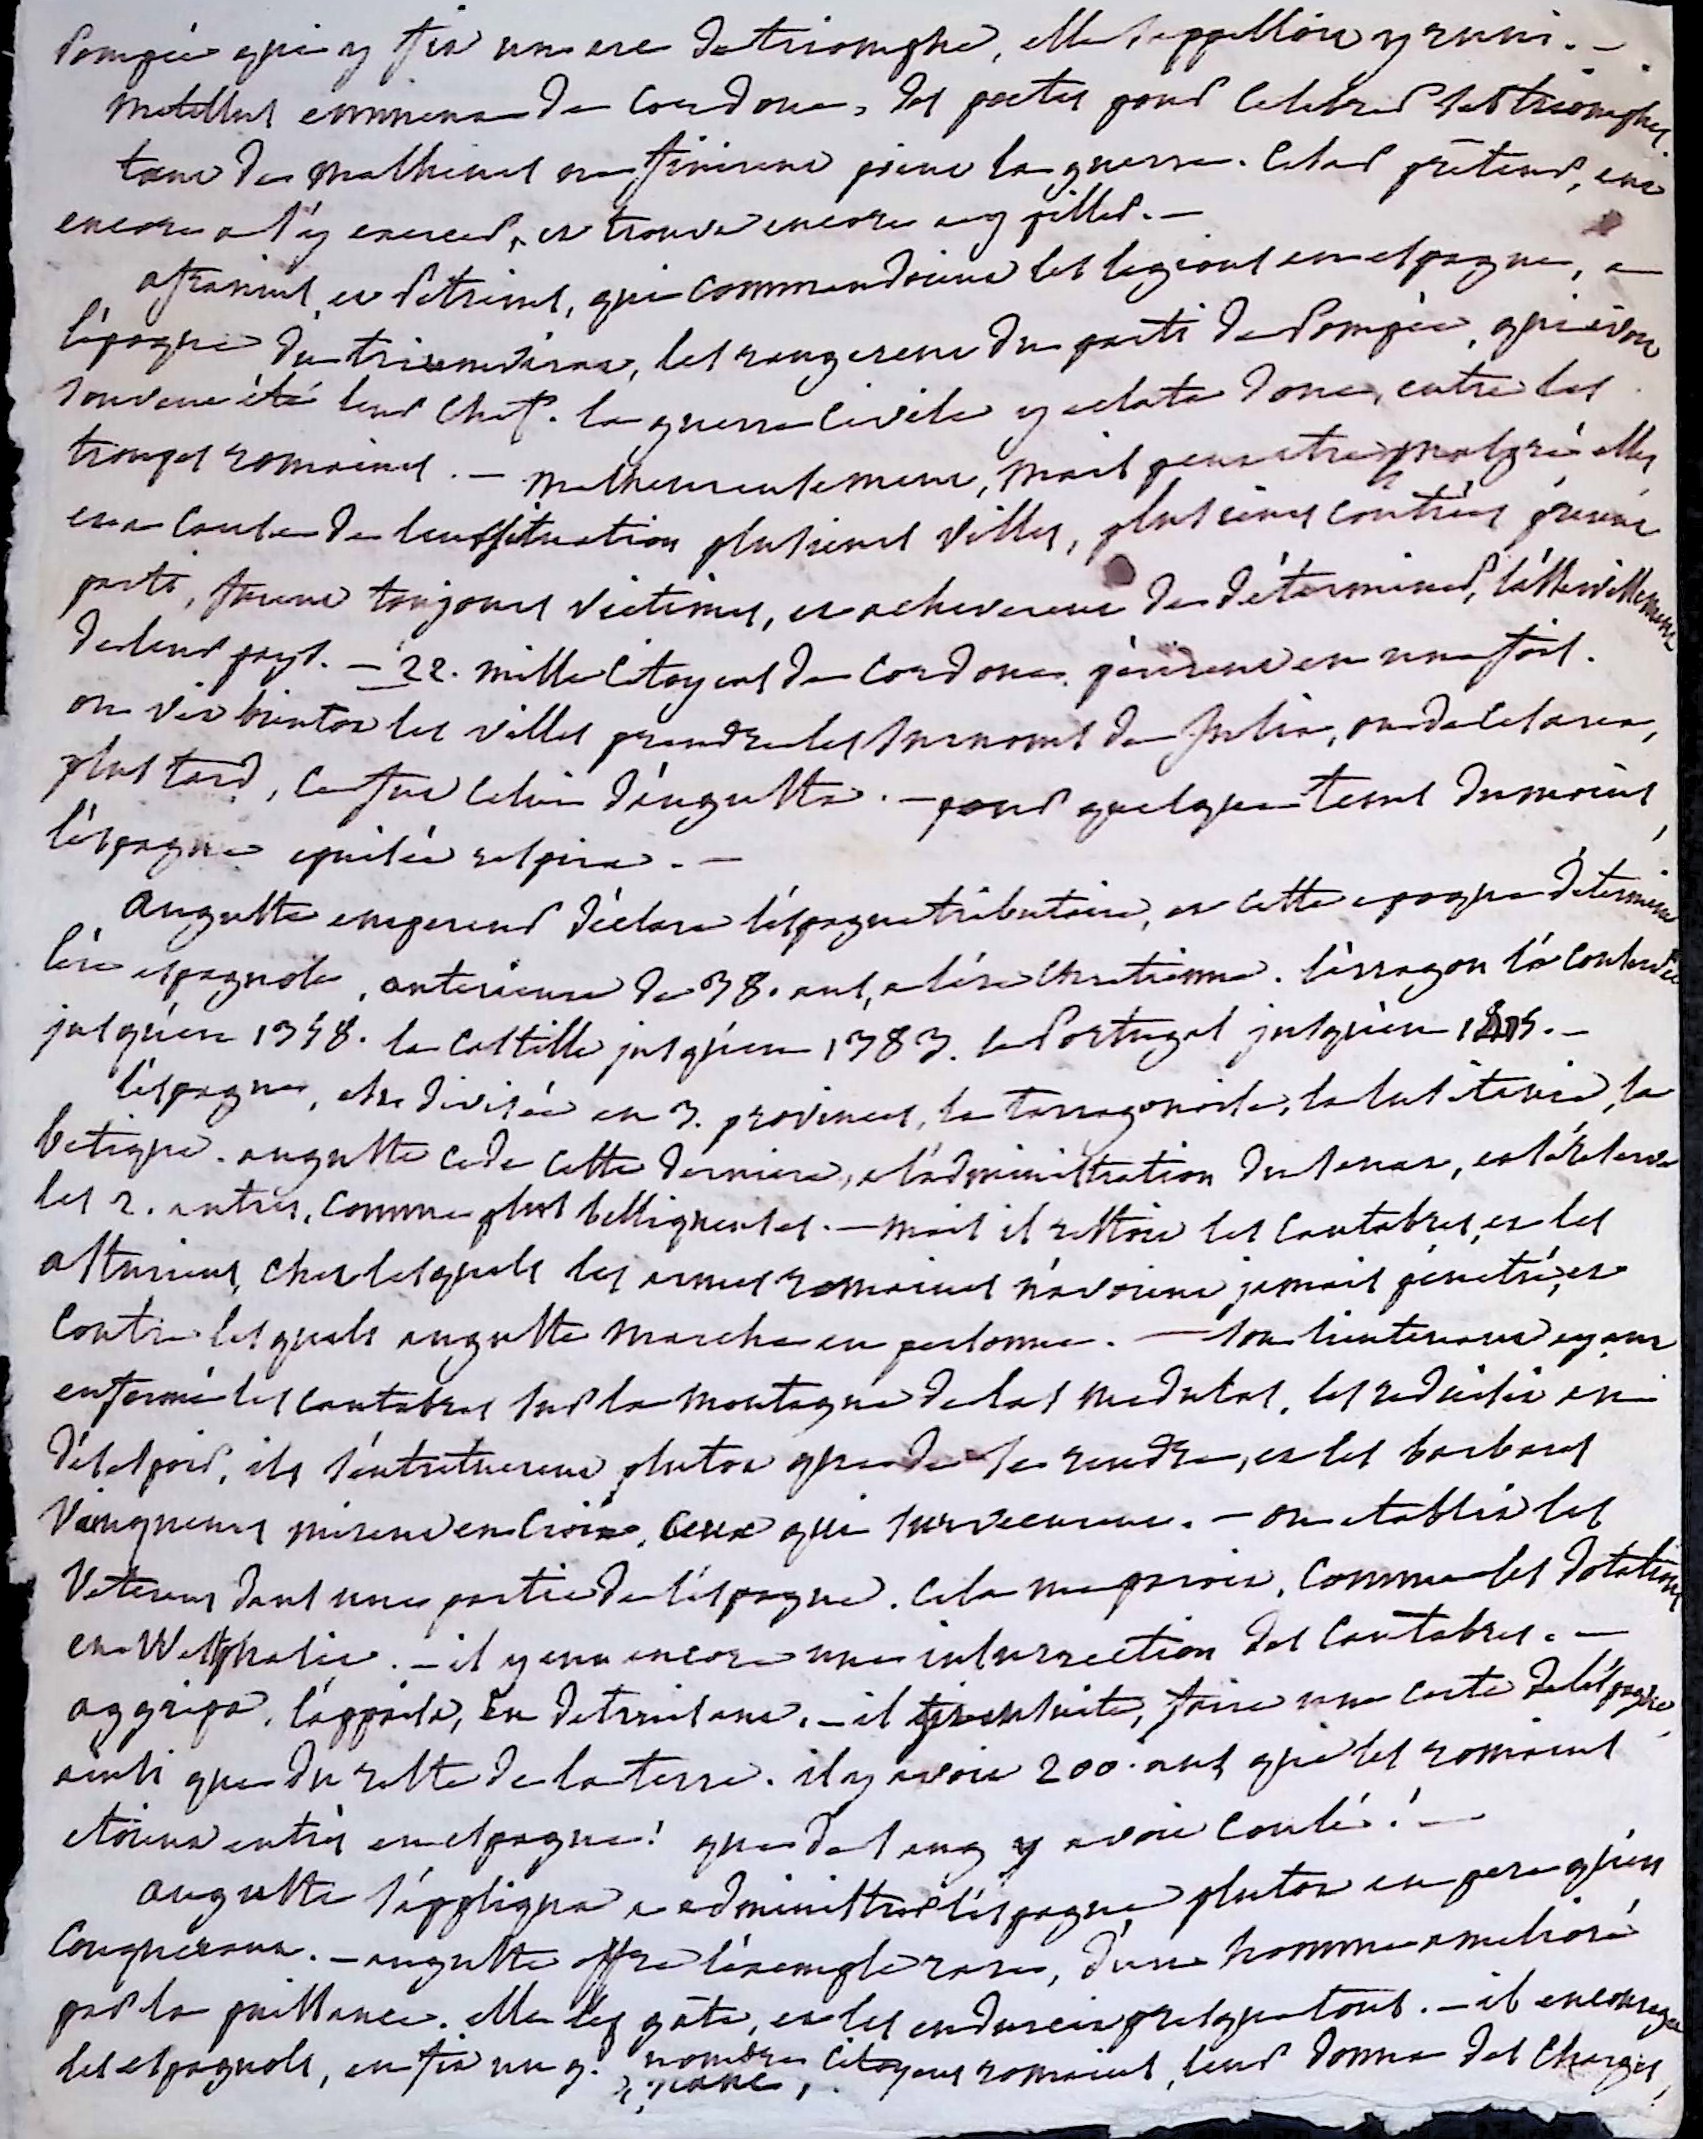 Pompée qui y fit un arc de triomphe, elle s'appelloit yruni. —
Metellus emmena de Cordoue, des poetes pour celebrer ses triomphes.
tant de malheurs ne finirent point la guerre. Cesar préteur, vint
encore a s'y exercer, et trouva encore a y piller. —
afranius, et Petreius, qui commandoient les legions en espagne, a
l'époque du triumvirat, les rangerent du parti de Pompée, qui avoit
souvent été leur chef. la guerre civile y eclata donc, entre les
troupes romaines. — malheureusement, mais peut etre malgré elles
et a cause de leur situation plusieurs villes, plusieurs contrées prirent
parti, furent toujours victimes, et acheverent de déterminer, l'asservissement
de leur pays. — 22. mille citoyens de Cordoue périrent en une fois.
on vit bientot les villes prendre les surnoms de Julia, ou de Cesarea,
plus tard, ce fut celui d'augusta. — pour quelque tems du moins,
l'espagne epuisée respira. —
Auguste empereur déclara l'espagne tributaire, et cette epoque détermine
l'ère espagnole, anterieure de 38. ans, a l'ère chretienne. l'arragon l'a conservée
jusqu'en 1358. la Castille jusqu'en 1383. le Portugal jusqu'en
l'espagne, etoit divisée en 3. provinces, la tarragonoise, la lusitanie, la
betique. auguste cede cette derniere, a l'administration du senat, et se réserve
les 2. autres, comme plus belliqueuses. — mais il restoit les cantabres, et les
asturiens, chez lesquels les armes romaines n'avoient jamais pénétré, et
contre lesquels auguste marcha en personne. — son lieutenant ayant
enfermé les cantabres sur la montagne de las medulas, les reduisit au
désespoir, ils s'entretuerent plutot que de se rendre, et les barbares
vainqueurs mirent en croix, ceux qui survecurent. — on etablit les
Veterans dans une partie de l'espagne. cela me paroit, comme les dotations
en Westphalie. — il y eut encore une insurrection des Cantabres. —
aggripa, l'appaisa, en detruisant. — il fit ensuite, faire une carte de l'espagne,
ainsi que du reste de la terre. il y avoit 200. ans que les romains
etoient entrés en espagne! que de sang y avoit coulé! —
auguste s'appliqua a administrer l'espagne plutot en pere qu'en
conquerant. — auguste offre l'exemple rare, d'un homme amelioré
par la puissance. elle les gâte, et les endurcit presque tous. — il encouragea
les espagnols, en fit un g. nombre citoyens romains, leur donna des charges,